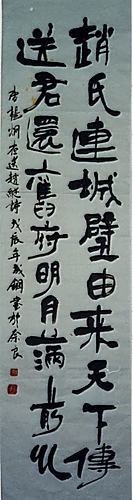 趙氏連城璧由来天下傳
送君還舊府明月滿前川
李楊炯李送趙縱詩戊辰年成鋼書於余良